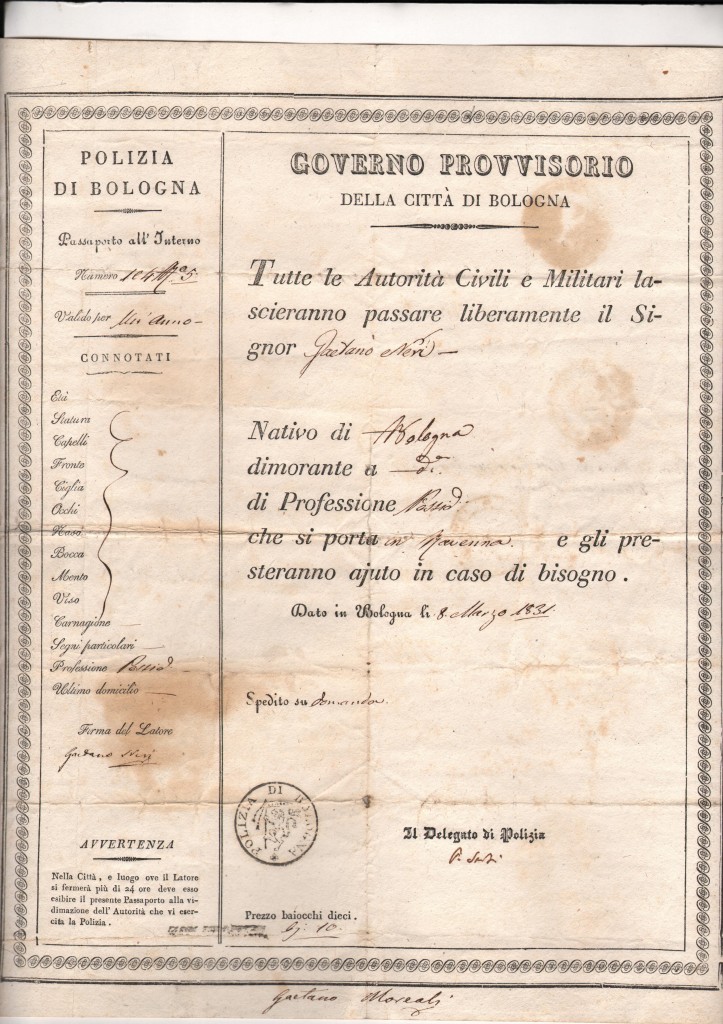 POLIZIA
DI BOLOGNA
Passaporto all' Interno
Numero
Valido per Un' Anno
CONNOTATI
Età
Statura
Capelli
Fronte
Ciglia
Occhi
Naso
Bocca
Mento
Viso
Carnagione
Segni particolari
Professione Possid.
Ultimo domicilio
Firma del Latore
Gaetano Neri
AVVERTENZA
Nella Città, e luogo ove il Latore
si fermerà più di 24 ore deve esso
esibire il presente Passaporto alla vi-
dimazione dell' Autorità che vi eser-
cita la Polizia.
GOVERNO PROVVISORIO
DELLA CITTÀ DI BOLOGNA
Tutte le Autorità Civili e Militari la-
scieranno passare liberamente il Si-
gnor Gaetano Neri
Nativo di Bologna
dimorante a
di Professione Possid.
che si porta in Ravenna e gli pre-
steranno ajuto in caso di bisogno.
Dato in Bologna li 8. Marzo 1831
Spedito su domanda
POLIZIA DI BOLOGNA
Il Delegato di Polizia
Prezzo baiocchi dieci.
Bj. 10.
Gaetano Moreali